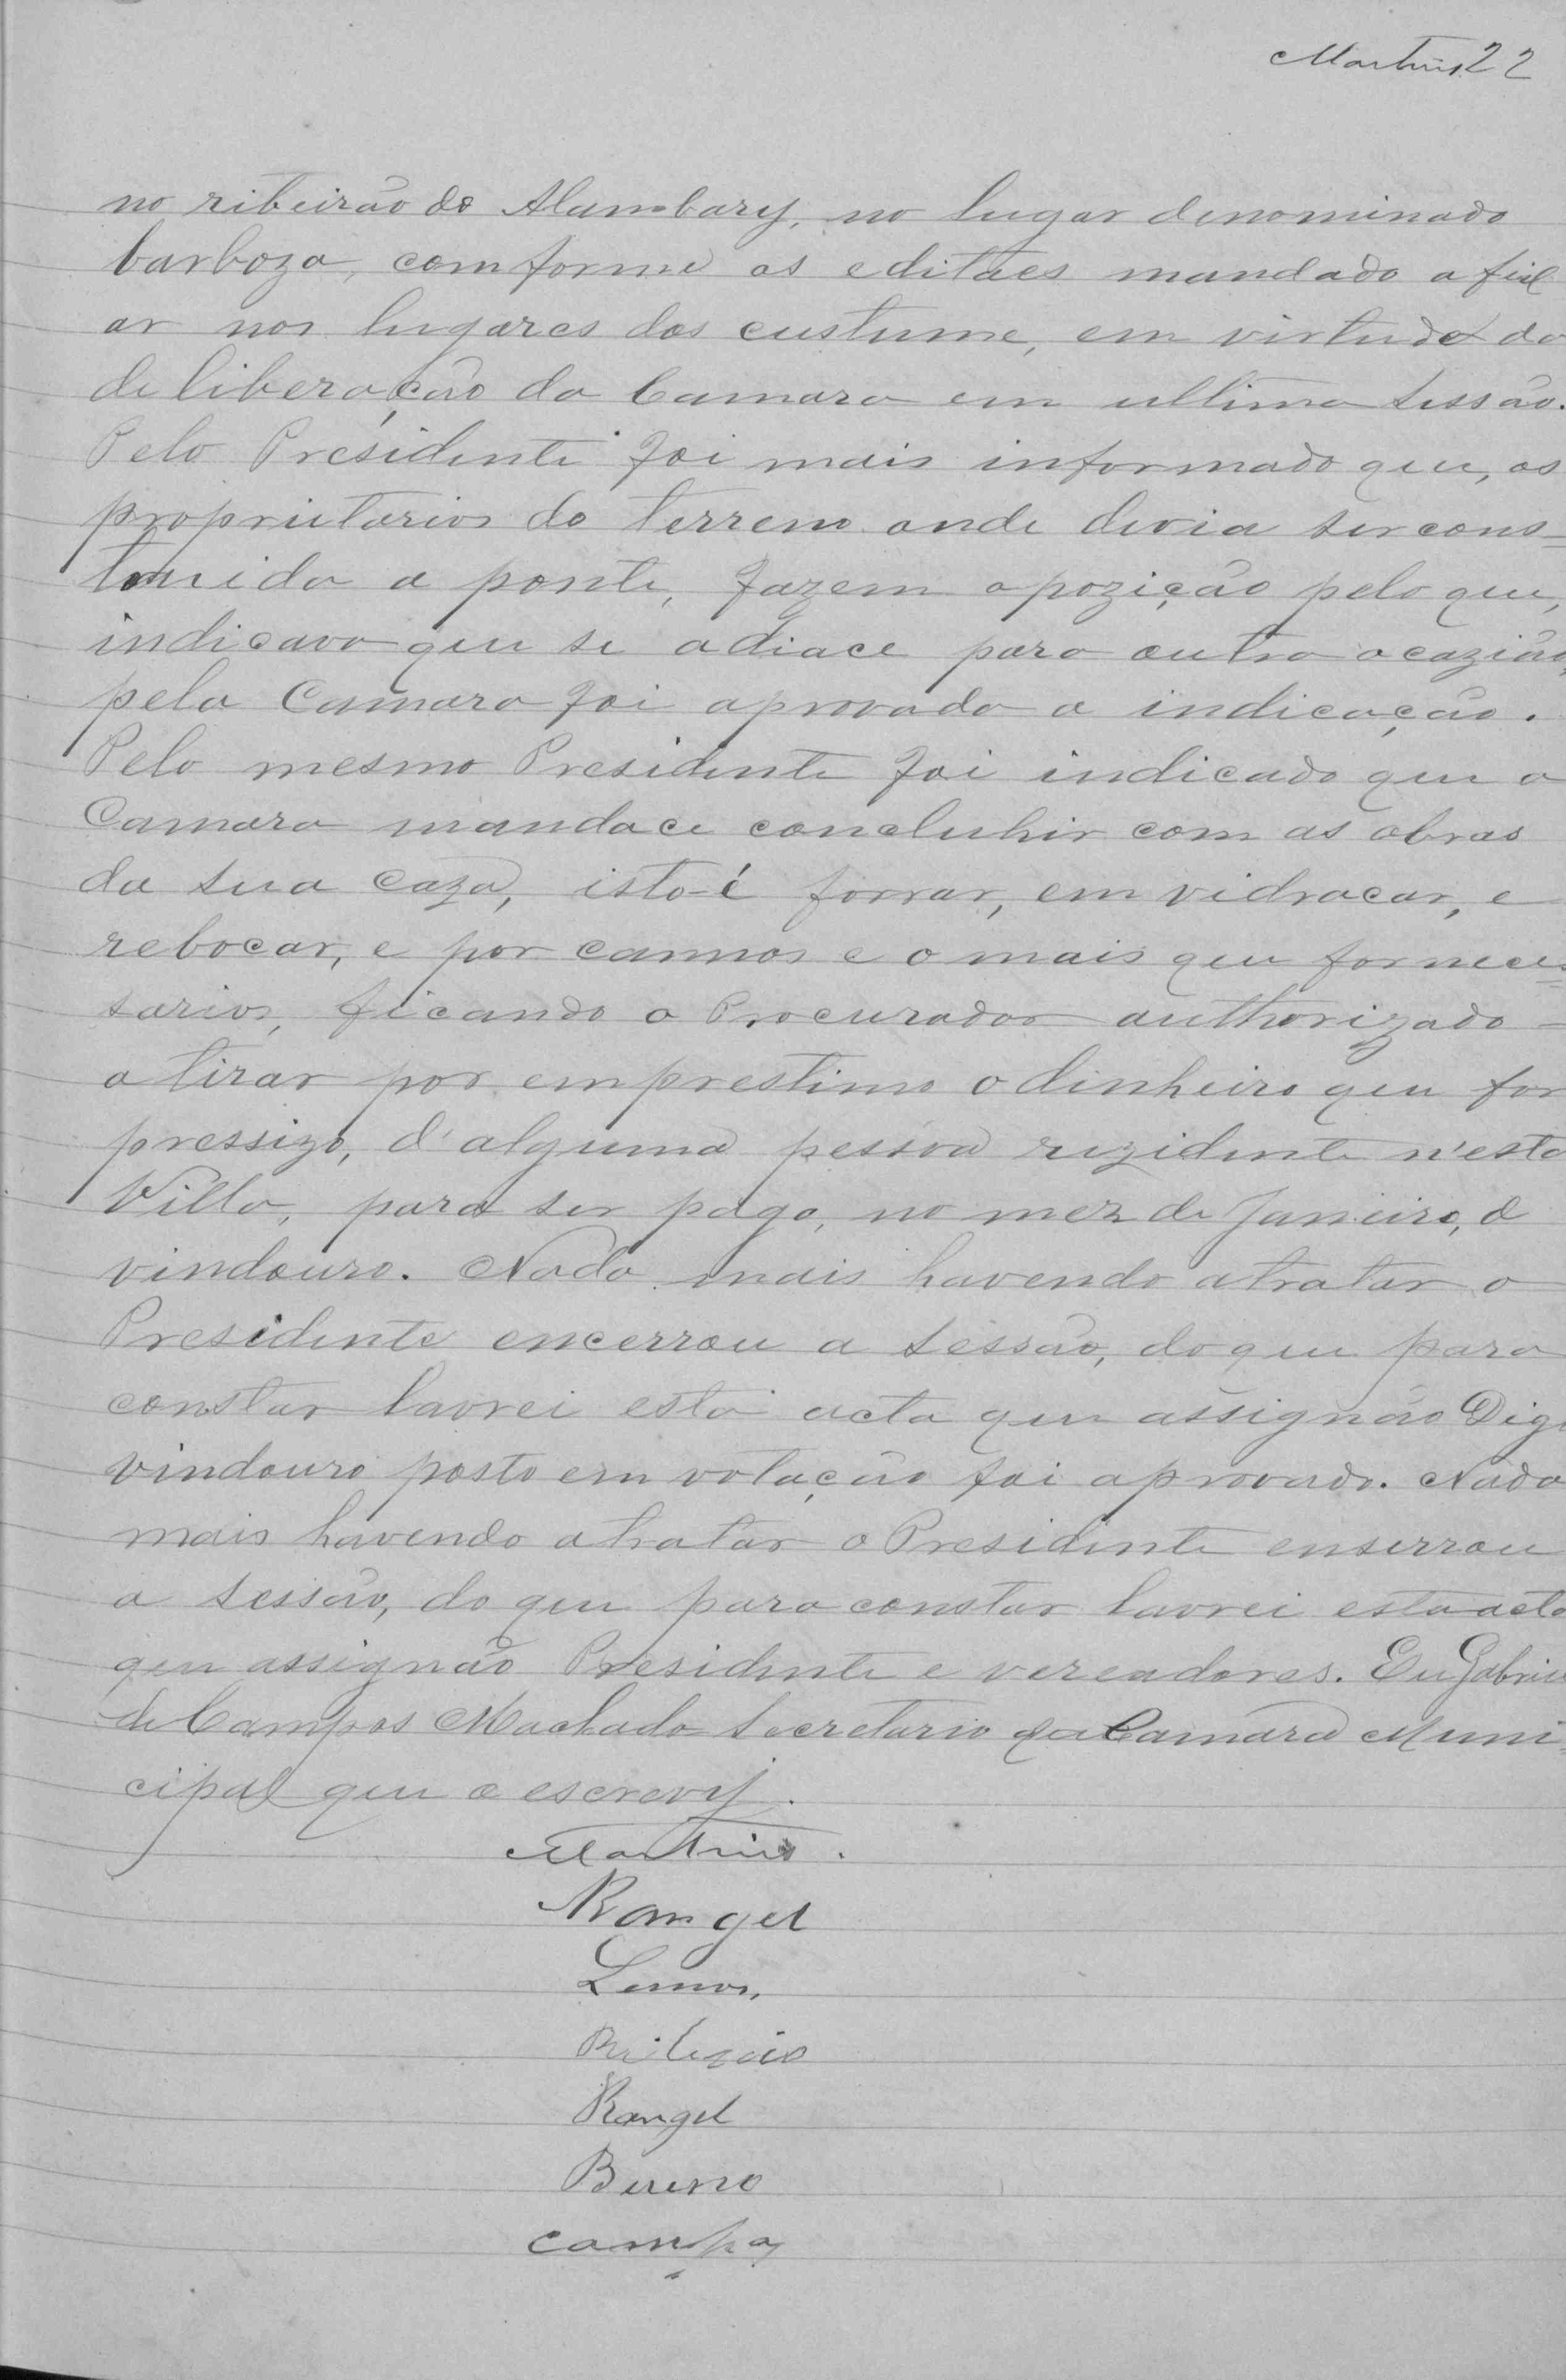 Martins 22
no ribeirão do Alambary, no lugar denominado
barboza, comforme as editaes mandado a fixl
ar nos lugares dos custume, em virtude da
de liberação da Camara em ultima sessão.
Pelo Presidente foi mais informado que, os
proprietarios do terreno onde devia ser cons=
truida a ponte, fazem opozição pelo que,
indicava que se adiace para outra ocazião,
pela Camara foi aprovada a indicação.
Pelo mesmo Presidente foi indicado que a
Camara mandace concluhir com as obras
da sua caza, isto é forrar, em vidracar, e
rebocar, e por cannos e o mais que for neces=
sarios, ficando o Procurador authorizado =
a tirar por emprestimo o dinheiro que for
pressizo, d'alguma pessoa rezidente n'esta
Villa, para ser pago, no mez de Janeiro, o
vindouro. Nada mais havendo a tratar o
Presidente encerrou a sessão, do que para
constar lavrei esta acta que assignão Digo
vindouro posto em votação foi aprovado. Nada
mais havendo a tratar o Presidente enserrou
a sessão, do que para constar lavrei esta acta
que assignão Presidente e vereadores. Eu Gabriel
de Campos Machado Secretario da Camara Muni=
cipal que o escrevy.
Martins.
Rangel
Lemos,
Rangel
Bueno
Campos